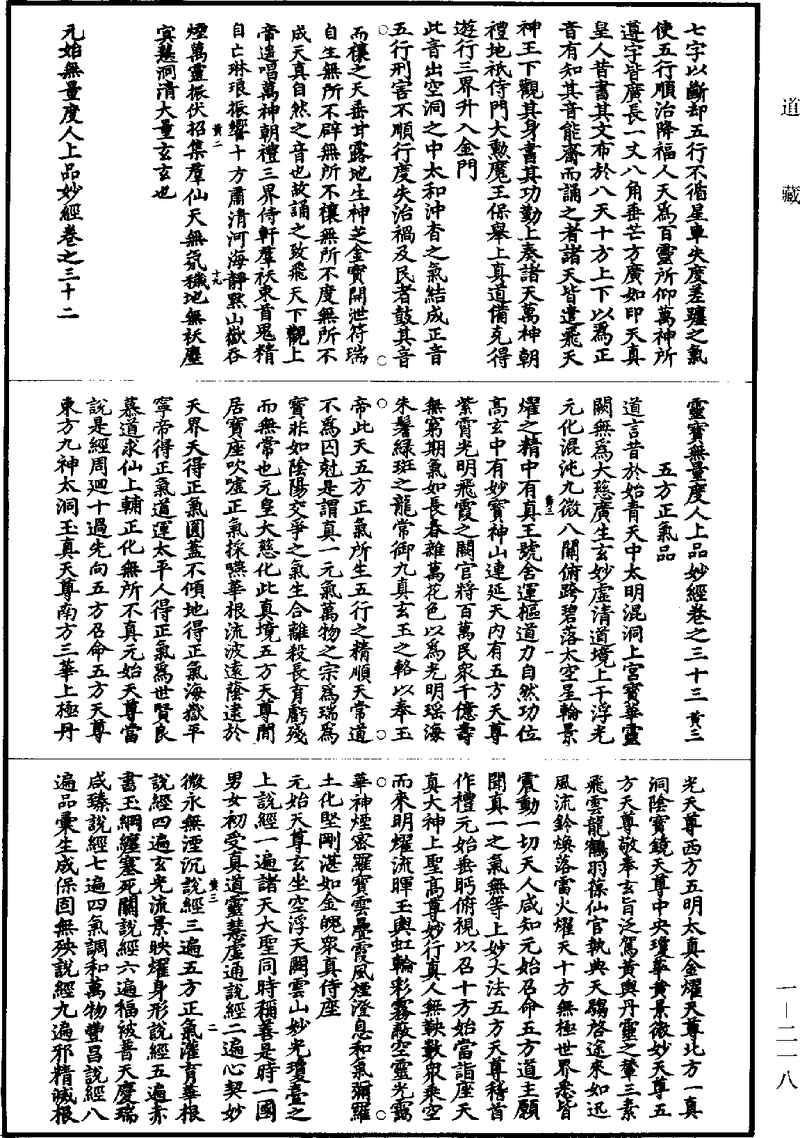 道藏
七字以斷却五行不循星車失度差躔之氣
使五行順治降福人天爲百靈所仰萬神所
遵字皆廣長一丈八角垂芒方廣如印天真
皇人昔書其文布於八天十方上下以爲正
音有知其音能齋而誦之者諸天皆遣飛天
神王下觀其身書其功勤上奏諸天萬神朝
禮地祇侍門大勳魔王保舉上真道備克得
遊行三界升入金門
此音出空洞之中太和沖杳之氣結成正音
五行刑害不順行度失治禍及民者鼓其音
而禳之天垂甘露地生神芝金寶開泄符瑞
自生無所不辟無所不禳無所不度無所不
成天真自然之音也故誦之致飛天下觀上
帝遥唱萬神朝禮三界侍軒羣祅束首鬼精
自亡琳琅振響十方肅清河海靜默山嶽吞
黄二
十九
煙萬靈振伏招集羣仙天無氛穢地無祅塵
冥慧洞清大量玄玄也
元始無量度人上品妙經卷之三十二
靈寶無量度人上品妙經卷之三十三 黄三
五方正氣品
道言昔於始青天中太明混洞上宮寶華靈
闕無爲大慈廣生玄妙虛清道境上干浮光
元化混沌九微八關俯跨碧落太空星輪景
黄三
一
燿之精中有真王號舍運樞道力自然功位
高玄中有妙寶神山連延天內有五方天尊
紫霄光明飛霞之闕官將百萬民衆千億壽
無窮期氣如長春雜萬花色以爲光明瑶海
朱鬐綠斑之龍常御九真玄玉之輅以奉玉
帝此天五方正氣所生五行之精順天常道
不爲囚尅是謂真一元氣萬物之宗爲瑞爲
寶非如陰陽交爭之氣生合離殺長育虧殘
而無常也元皇大慈化此真境五方天尊間
居寶座吹嘘正氣採嚥華根流波遠蔭逮於
天界天得正氣圓蓋不傾地得正氣海嶽平
寧帝得正氣道運太平人得正氣爲世賢良
慕道求仙上輔正化無所不真元始天尊當
說是經周迴十過先向五方召命五方天尊
東方九神太洞玉真天尊南方三華上極丹
光天尊西方五明太真金燿天尊北方一真
洞陰寶鏡天尊中央瓊華黄景微妙天尊五
方天尊敬奉玄旨泛駕黄輿丹靈之輦三素
飛雲龍鶴羽葆仙官執典天騶啓途來如迅
風流鈴煥落雷火燿天十方無極世界悉皆
震動一切天人咸知元始召命五方道主願
聞真一之氣無等上妙大法五方天尊稽首
作禮元始垂眄俯視以召十方始當詣座天
真大神上聖高尊妙行真人無鞅數衆乘空
而來明燿流暉玉輿虹輪彩霧蔽空靈光靄
華神煙密羅寶雲疊霞風煙澄息和氣彌羅
土化堅剛湛如金魄衆真侍座
元始天尊玄坐空浮天闕雲山妙光瓊臺之
上說經一遍諸天大聖同時稱善是時一國
男女初受真道靈慧虛通說經二遍心契妙
黄三
二
微永無湮沉說經三遍五方正氣灌育華根
說經四遍玄光流景映燿身形說經五遍赤
書玉綱纏塞死關說經六遍福被普天慶瑞
咸臻說經七遍四氣調和萬物豐昌說經八
遍品彙生成保固無殃說經九遍邪精滅根
一—二一八